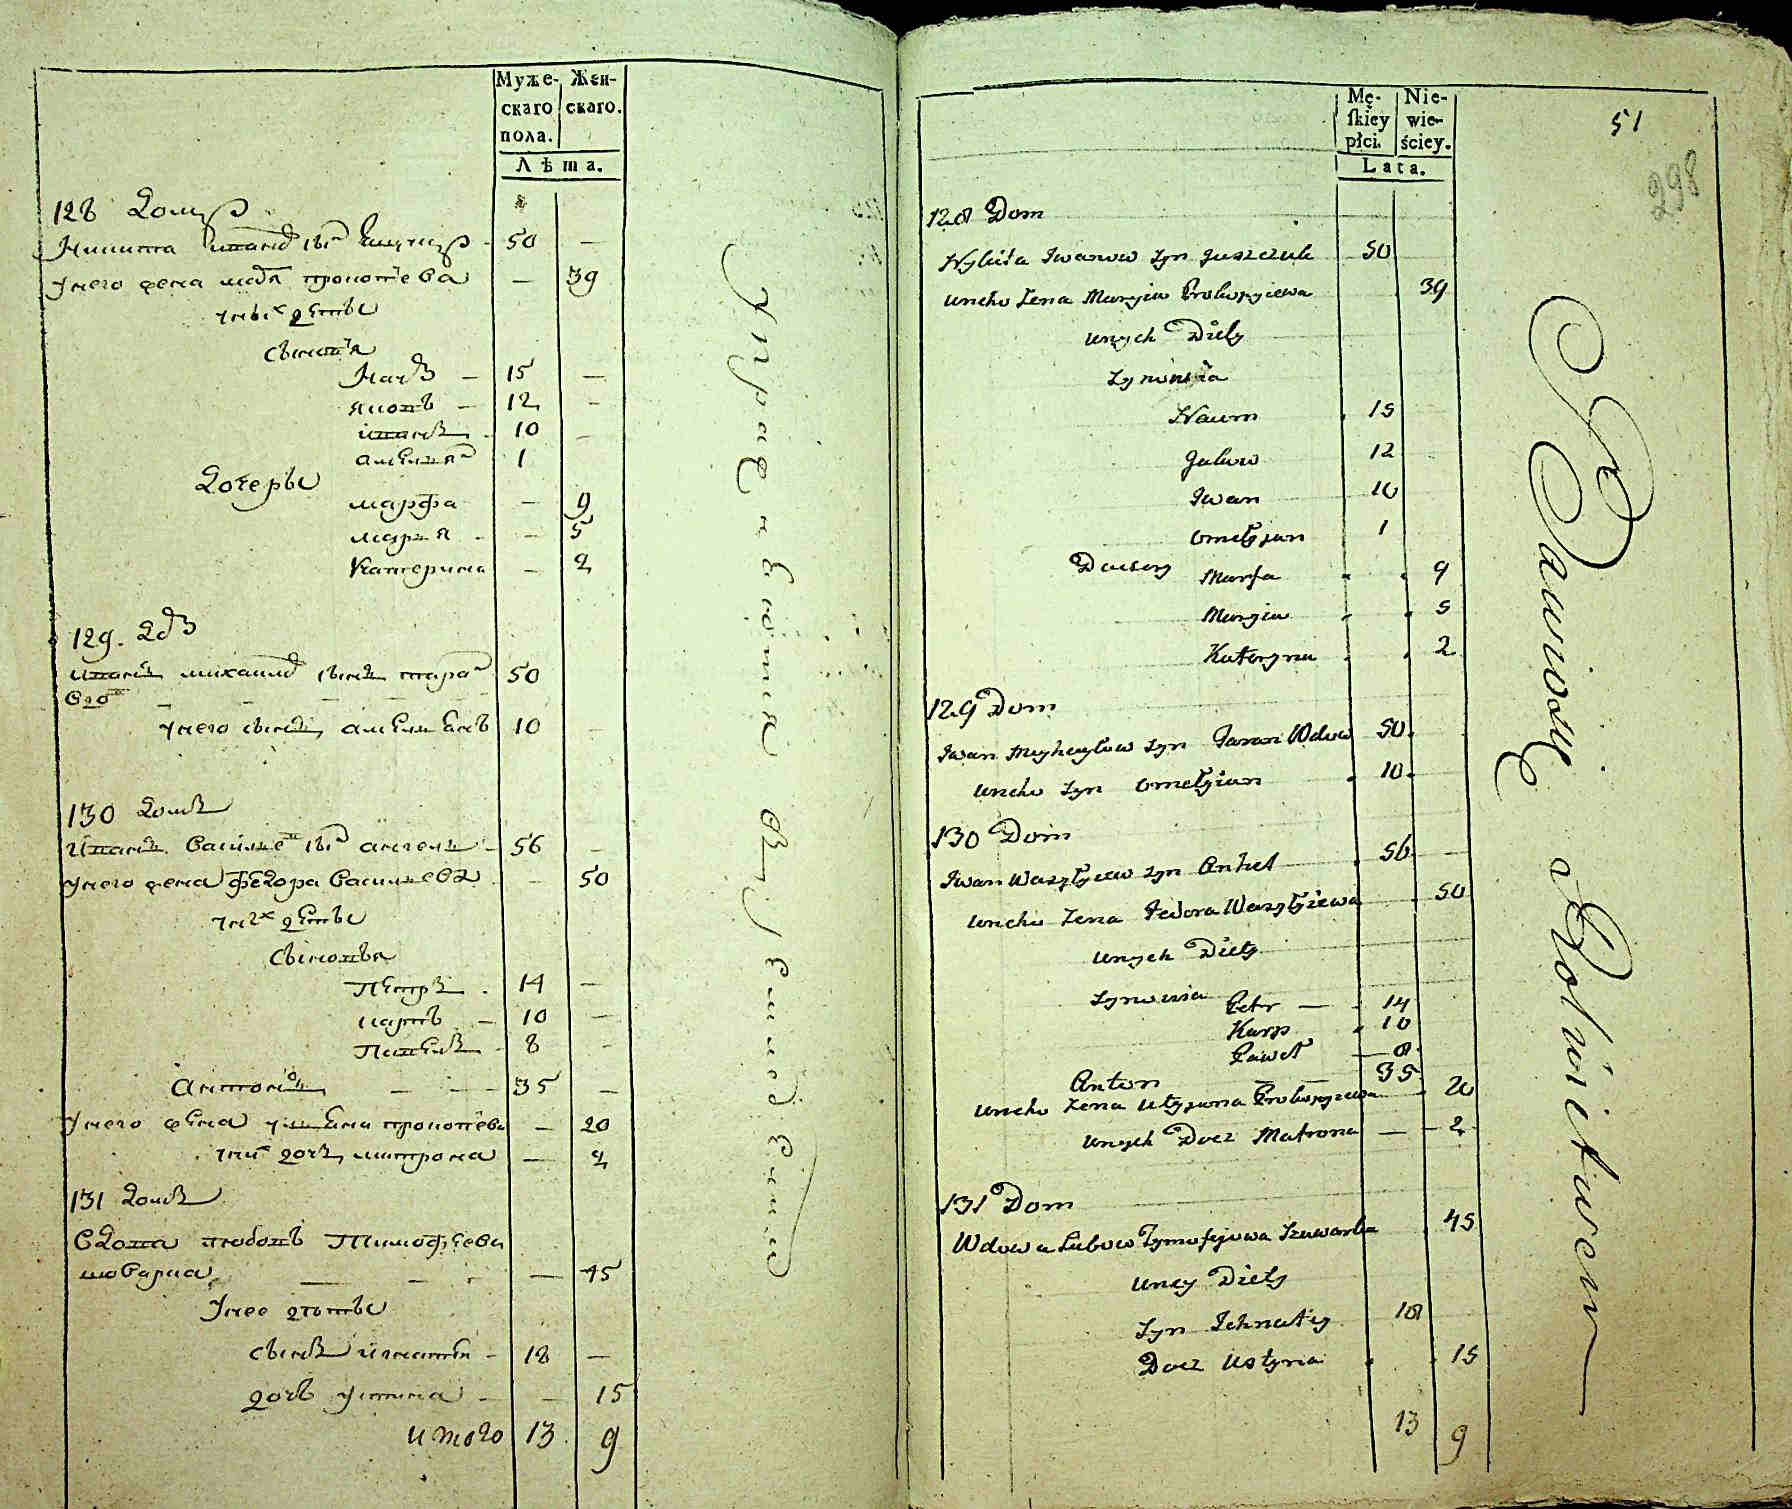 Муже-
скаго
пола.
Жен-
скаго.
Лѣта.
128 домъ
Никита сн҃ъ 50 —
у него жена Марія Прокопіева — 39
у них дѣти
сыновья
Наумъ — 15 —
Яковъ — 12 —
Иванъ 10 —
Амелиянъ 1
дочеры
Марфа — 9
Маря — 5
Катерина — 2
129. дом
Иванъ Михайловъ сынъ Таран 50
вдов
у него сынъ Амелиянъ 10 —
130 домъ
Иванъ Василиев сн҃ъ Ангелъ 56 —
у него жена Федора Василиева — 50
у них дѣти
сыновья
Петръ 14 —
Карпъ — 10 —
Павелъ 8 —
Антонъ — — 35 —
у него жена Улияна Прокопіева — 20
у них дочь Митрона — 2
131 домъ
Вдова Любовъ Тимофѣева
Шварка — 45
у нее дѣти
сынъ Игнатій — 18 —
дочъ Устина — — 15
итого 13 9
Mę-
skiey
płci.
Nie-
wie-
ściey.
Lata.
51
298
128 Dom
Nykita Iwanow Syn Juszczuk 50
uneho Żena Maryia Prokopyiewa 39
unych Diety
Synowia
Naum 15
Jakow 12
Iwan 10
Omełyjan 1
Doczery Marfa 9
Maryia 5
Kateryna 2
129 Dom
Iwan Myhayłow Syn Taran Wdow 50
uneho Syn Omełyian 10
130 Dom
Iwan Wasylyiew Syn Anhel 56 —
uneho Żena Fedora Wasylyiewa 50
unych Diety
Synowia Petr — 14
Karp 10
Paweł — 8
Anton — — 35
uneho Żena Ulyjana Prokopyiewa 20
unych Docz Matrona — — 2
131 Dom
Wdowa Lubow Tymofijowa Szwarka 45
uney Diety
Syn Ihnatiy 18
Docz Ustyna 15
13 9